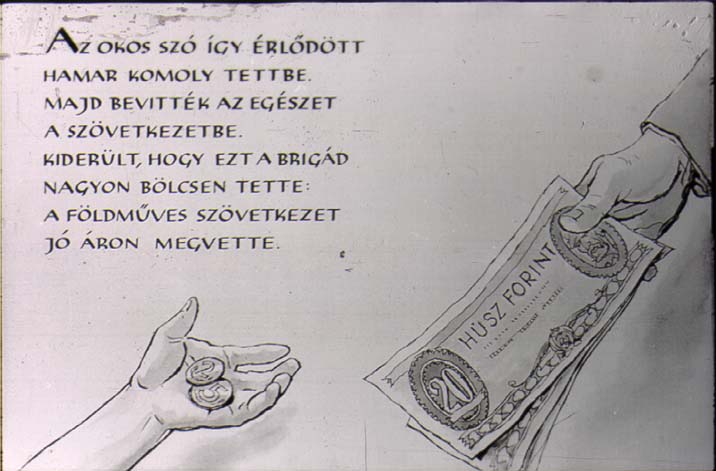 AZ OKOS SZÓ ÍGY ÉRLŐDÖTT
HAMAR KOMOLY TETTBE.
MAJD BEVITTÉK AZ EGÉSZET
A SZÖVETKEZETBE.
KIDERÜLT, HOGY EZT A BRIGÁD
NAGYON BÖLCSEN TETTE:
A FÖLDMŰVES SZÖVETKEZET
JÓ ÁRON MEGVETTE.
HÚSZ FORINT
20
2
5